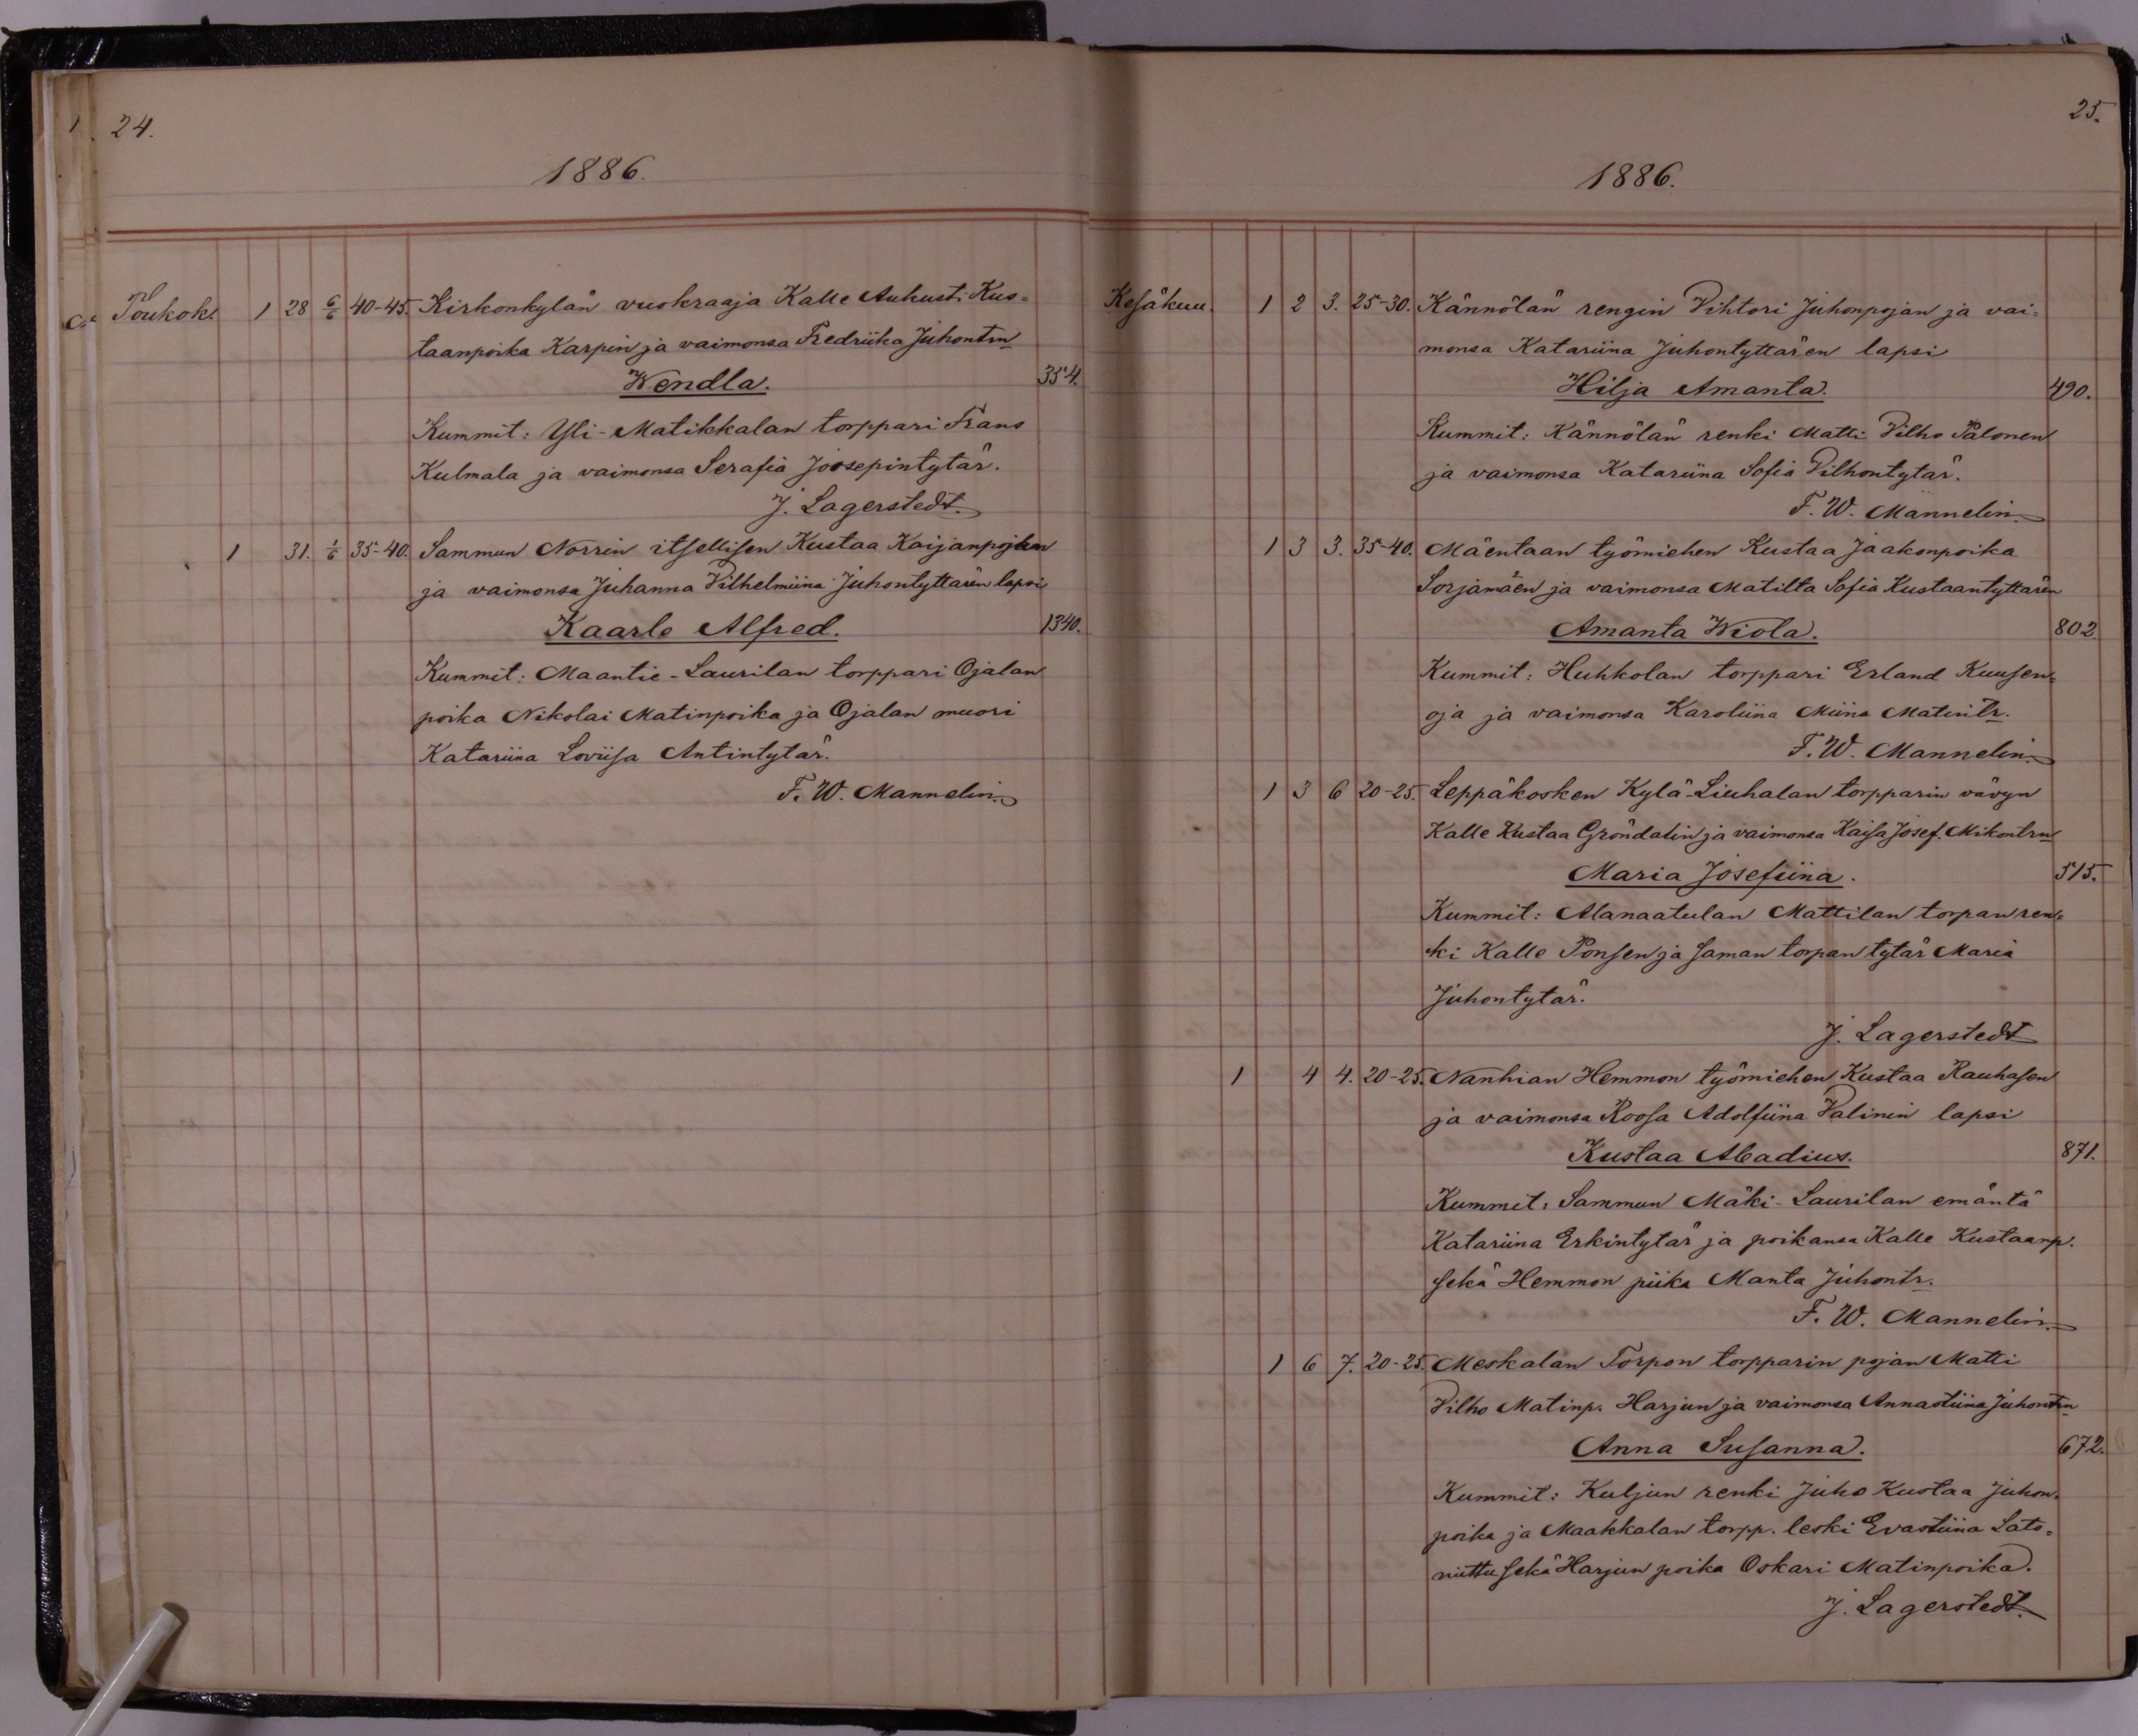 24.
1886.
Toukok. 1 28 6/6 40-45. Kirkonkylän vuokraaja Kalle Auhusti Kus=
taanpoika Karpin ja vaimonsa Fredriika Juhontrn
Wendla. 354.
Kummit: Yli-Matikkalan torppari Frans
Kulmala ja vaimonsa Serafia Joosepintytär.
J. Lagerstedt.
1 31. 1/6 35-40. Sammun Norrin itsellisen Kustaa Kaijanpojan
ja vaimonsa Juhanna Vilhelmiina Juhontyttären lapsi
Kaarle Alfred. 1340.
Kummit: Maantie-Laurilan torppari Ojalan
poika Nikolai Matinpoika ja Ojalan muori
Katariina Loviisa Antintytär.
F. W. Mannelin.
25.
1886.
Kesäkuu. 1 2 3. 25-30. Kännölän rengin Vihtori Juhonpojan ja vai=
monsa Katariina Juhontyttären lapsi
Hilja Amanta. 490.
Kummit: Kännölän renki Matti Vilho Palonen
ja vaimonsa Katariina Sofia Vilhontytär.
F. W. Mannelin.
1 3 3. 35-40. Mäentaan työmiehen Kustaa Jaakonpoika
Sorjamäen ja vaimonsa Matilta Sofia Kustaantyttären
Amanta Wiola. 802
Kummit: Huhkolan torppari Erland Kuusen=
oja ja vaimonsa Karoliina Miina Matintr.
F. W. Mannelin.
1 3 6 20-25. Leppäkosken Kylä-Liuhalan torpparin vävyn
Kalle Kustaa Gröndalin ja vaimonsa Kaisa Josef. Mikontrn
Maria Josefiina. 515.
Kummit: Alanaatulan Mattilan torpan ren=
ki Kalle Ponsen ja saman torpan tytär Maria
Juhontytär.
J. Lagerstedt
1 4 4. 20-25. Nanhian Hemmon työmiehen Kustaa Rauhasen
ja vaimonsa Roosa Adolfiina Valinin lapsi
Kustaa Abadius. 871.
Kummit: Sammun Mäki-Laurilan emäntä
Katariina Erkintytär ja poikansa Kalle Kustaanp.
sekä Hemmon piika Manta Juhontr.
F. W. Mannelin.
1 6 7. 20-25. Meskalan Torpon torpparin pojan Matti
Vilho Matinp. Harjun ja vaimonsa Annastiina Juhontrn
Anna Susanna. 672.
Kummit: Kuljun renki Juho Kustaa Juhon=
poika ja Maakkalan torpp. leski Evastiina Lato=
niittu sekä Harjun poika Oskari Matinpoika.
J. Lagerstedt.